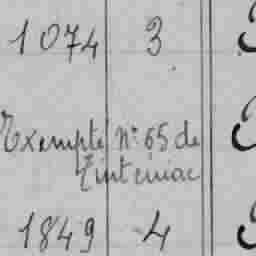 1074 3
Exempté n° 65 de
Tinténiac
1849 4